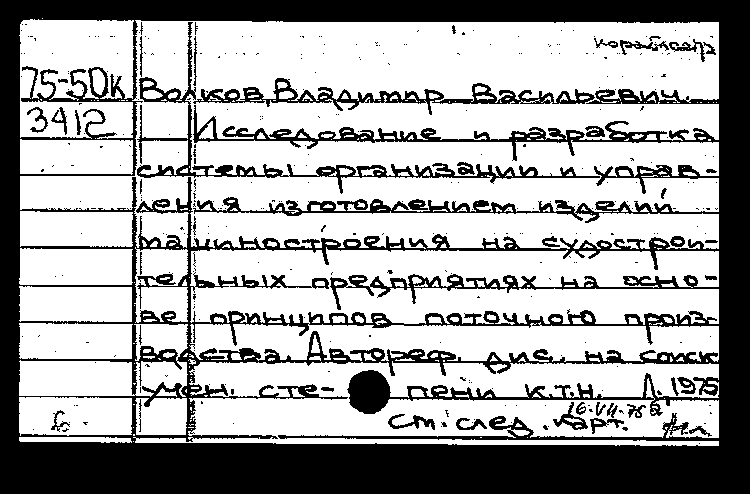 75-50к Волков, Владимир Васильевич.
3412 Исследование и разработка
системы организации и управ-
ления изготовлением изделий
машиностроения на судострои-
тельных предприятиях на осно-
ве принципов поточного произ-
водства. Автореф. дис. на соиск
учен. сте- пени к.т.н. Л., 1975
16.VII.75
См. след. карт.